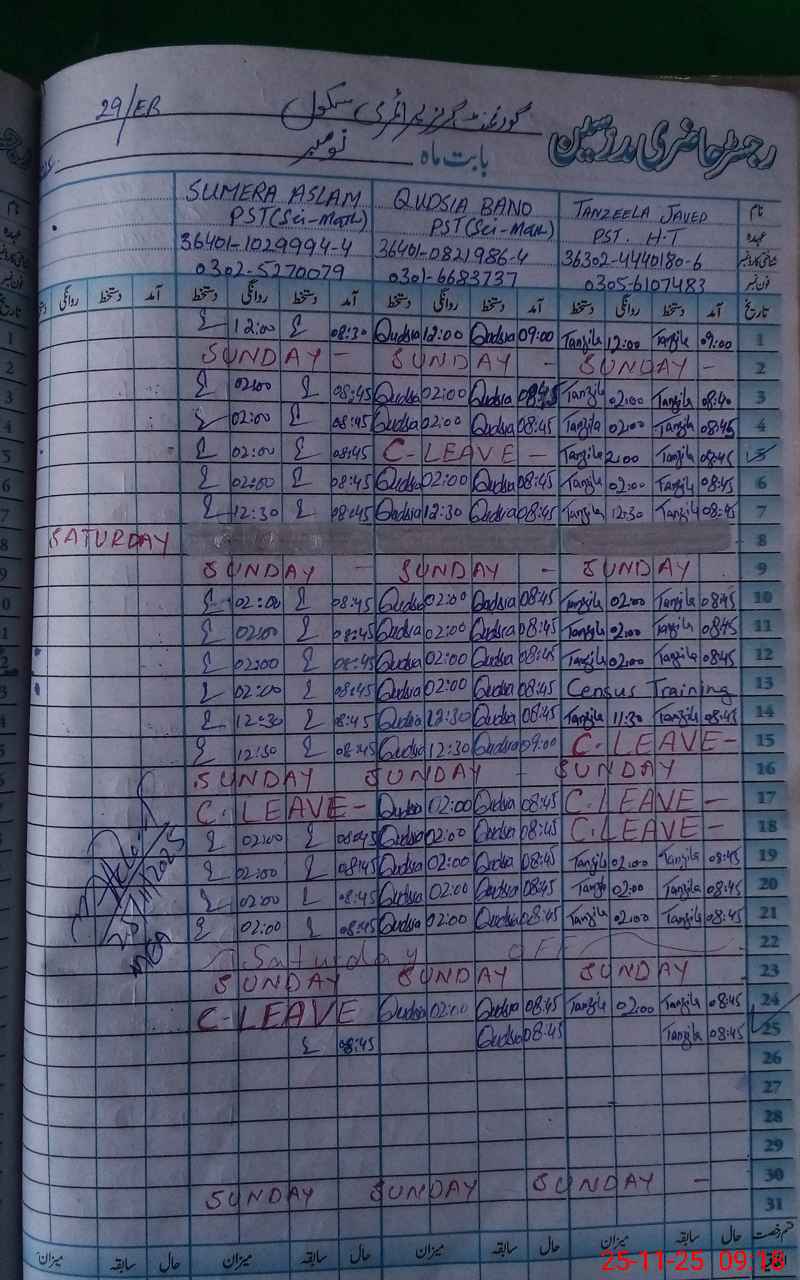 29/EB گورنمنٹ گرلز پرائمری سکول
رجسٹر حاضری مدرسین
بابت ماہ نومبر
نام TANZEELA JAVED QUDSIA BANO SUMERA ASLAM
عہدہ PST. H-T PST(Sci-Math) PST(Sci-Math)
شناختی کارڈ نمبر 36302-4440180-6 36401-0821986-4 36401-1029994-4
فون نمبر 0305-6107483 0301-6683737 0302-5270079
تاریخ آمد دستخط روانگی دستخط آمد دستخط روانگی دستخط آمد دستخط روانگی دستخط آمد دستخط روانگی دستخط
12:00 08:30 Qudsia 12:00 Qudsia 09:00 Tanzila 12:00 Tanzila 09:00 1
SUNDAY - SUNDAY - SUNDAY - 2
02:00 08:45 Qudsia 02:00 Qudsia 08:45 Tanzila 02:00 Tanzila 08:40 3
02:00 08:45 Qudsia 02:00 Qudsia 08:45 Tanzila 02:00 Tanzila 08:45 4
02:00 08:45 C-LEAVE - Tanzila 2:00 Tanzila 08:45 5
02:00 08:45 Qudsia 02:00 Qudsia 08:45 Tanzila 02:00 Tanzila 08:45 6
12:30 08:45 Qudsia 12:30 Qudsia 08:45 Tanzila 12:30 Tanzila 08:45 7
SATURDAY 8
SUNDAY - SUNDAY - SUNDAY 9
02:00 08:45 Qudsia 02:00 Qudsia 08:45 Tanzila 02:00 Tanzila 08:45 10
02:00 08:45 Qudsia 02:00 Qudsia 08:45 Tanzila 02:00 Tanzila 08:45 11
02:00 08:45 Qudsia 02:00 Qudsia 08:45 Tanzila 02:00 Tanzila 08:45 12
02:00 08:45 Qudsia 02:00 Qudsia 08:45 Census Training 13
12:30 8:45 Qudsia 12:30 Qudsia 08:45 Tanzila 11:30 Tanzila 08:45 14
12:30 08:45 Qudsia 12:30 Qudsia 09:00 C-LEAVE - 15
SUNDAY SUNDAY - SUNDAY 16
C-LEAVE - Qudsia 02:00 Qudsia 08:45 C-LEAVE - 17
02:00 08:45 Qudsia 02:00 Qudsia 08:45 C-LEAVE - 18
02:00 08:45 Qudsia 02:00 Qudsia 08:45 Tanzila 02:00 Tanzila 08:45 19
02:00 08:45 Qudsia 02:00 Qudsia 08:45 Tanzila 02:00 Tanzila 08:45 20
02:00 08:45 Qudsia 02:00 Qudsia 08:45 Tanzila 02:00 Tanzila 08:45 21
Saturday OFF 22
SUNDAY SUNDAY SUNDAY 23
C-LEAVE Qudsia 02:00 Qudsia 08:45 Tanzila 02:00 Tanzila 08:45 24
08:45 Qudsia 08:45 Tanzila 08:45 25
26
27
28
29
SUNDAY SUNDAY SUNDAY - 30
31
25/11/2025
MEA
قسم رخصت حال سابقہ میزان حال سابقہ میزان حال سابقہ میزان حال سابقہ میزان
25-11-25 09:16